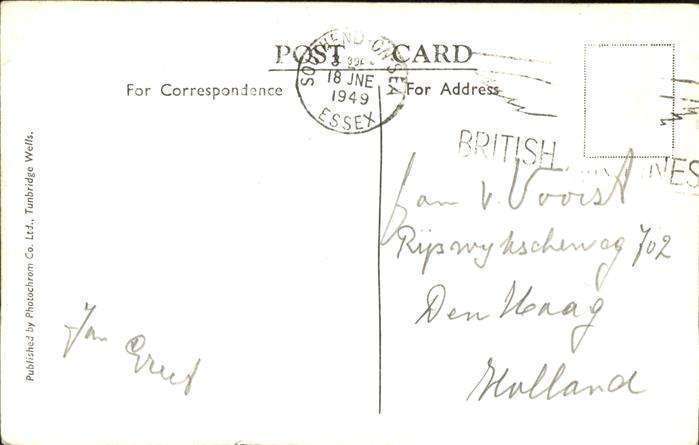 POST CARD
For Correspondence
For Address
SOUTHEND-ON-SEA
18 JNE
1949
ESSEX
BRITISH
Jan v. Voorst
Rijswijkscheweg 702
Den Haag
Holland
Jan
Published by Photochrom Co. Ltd., Tunbridge Wells.